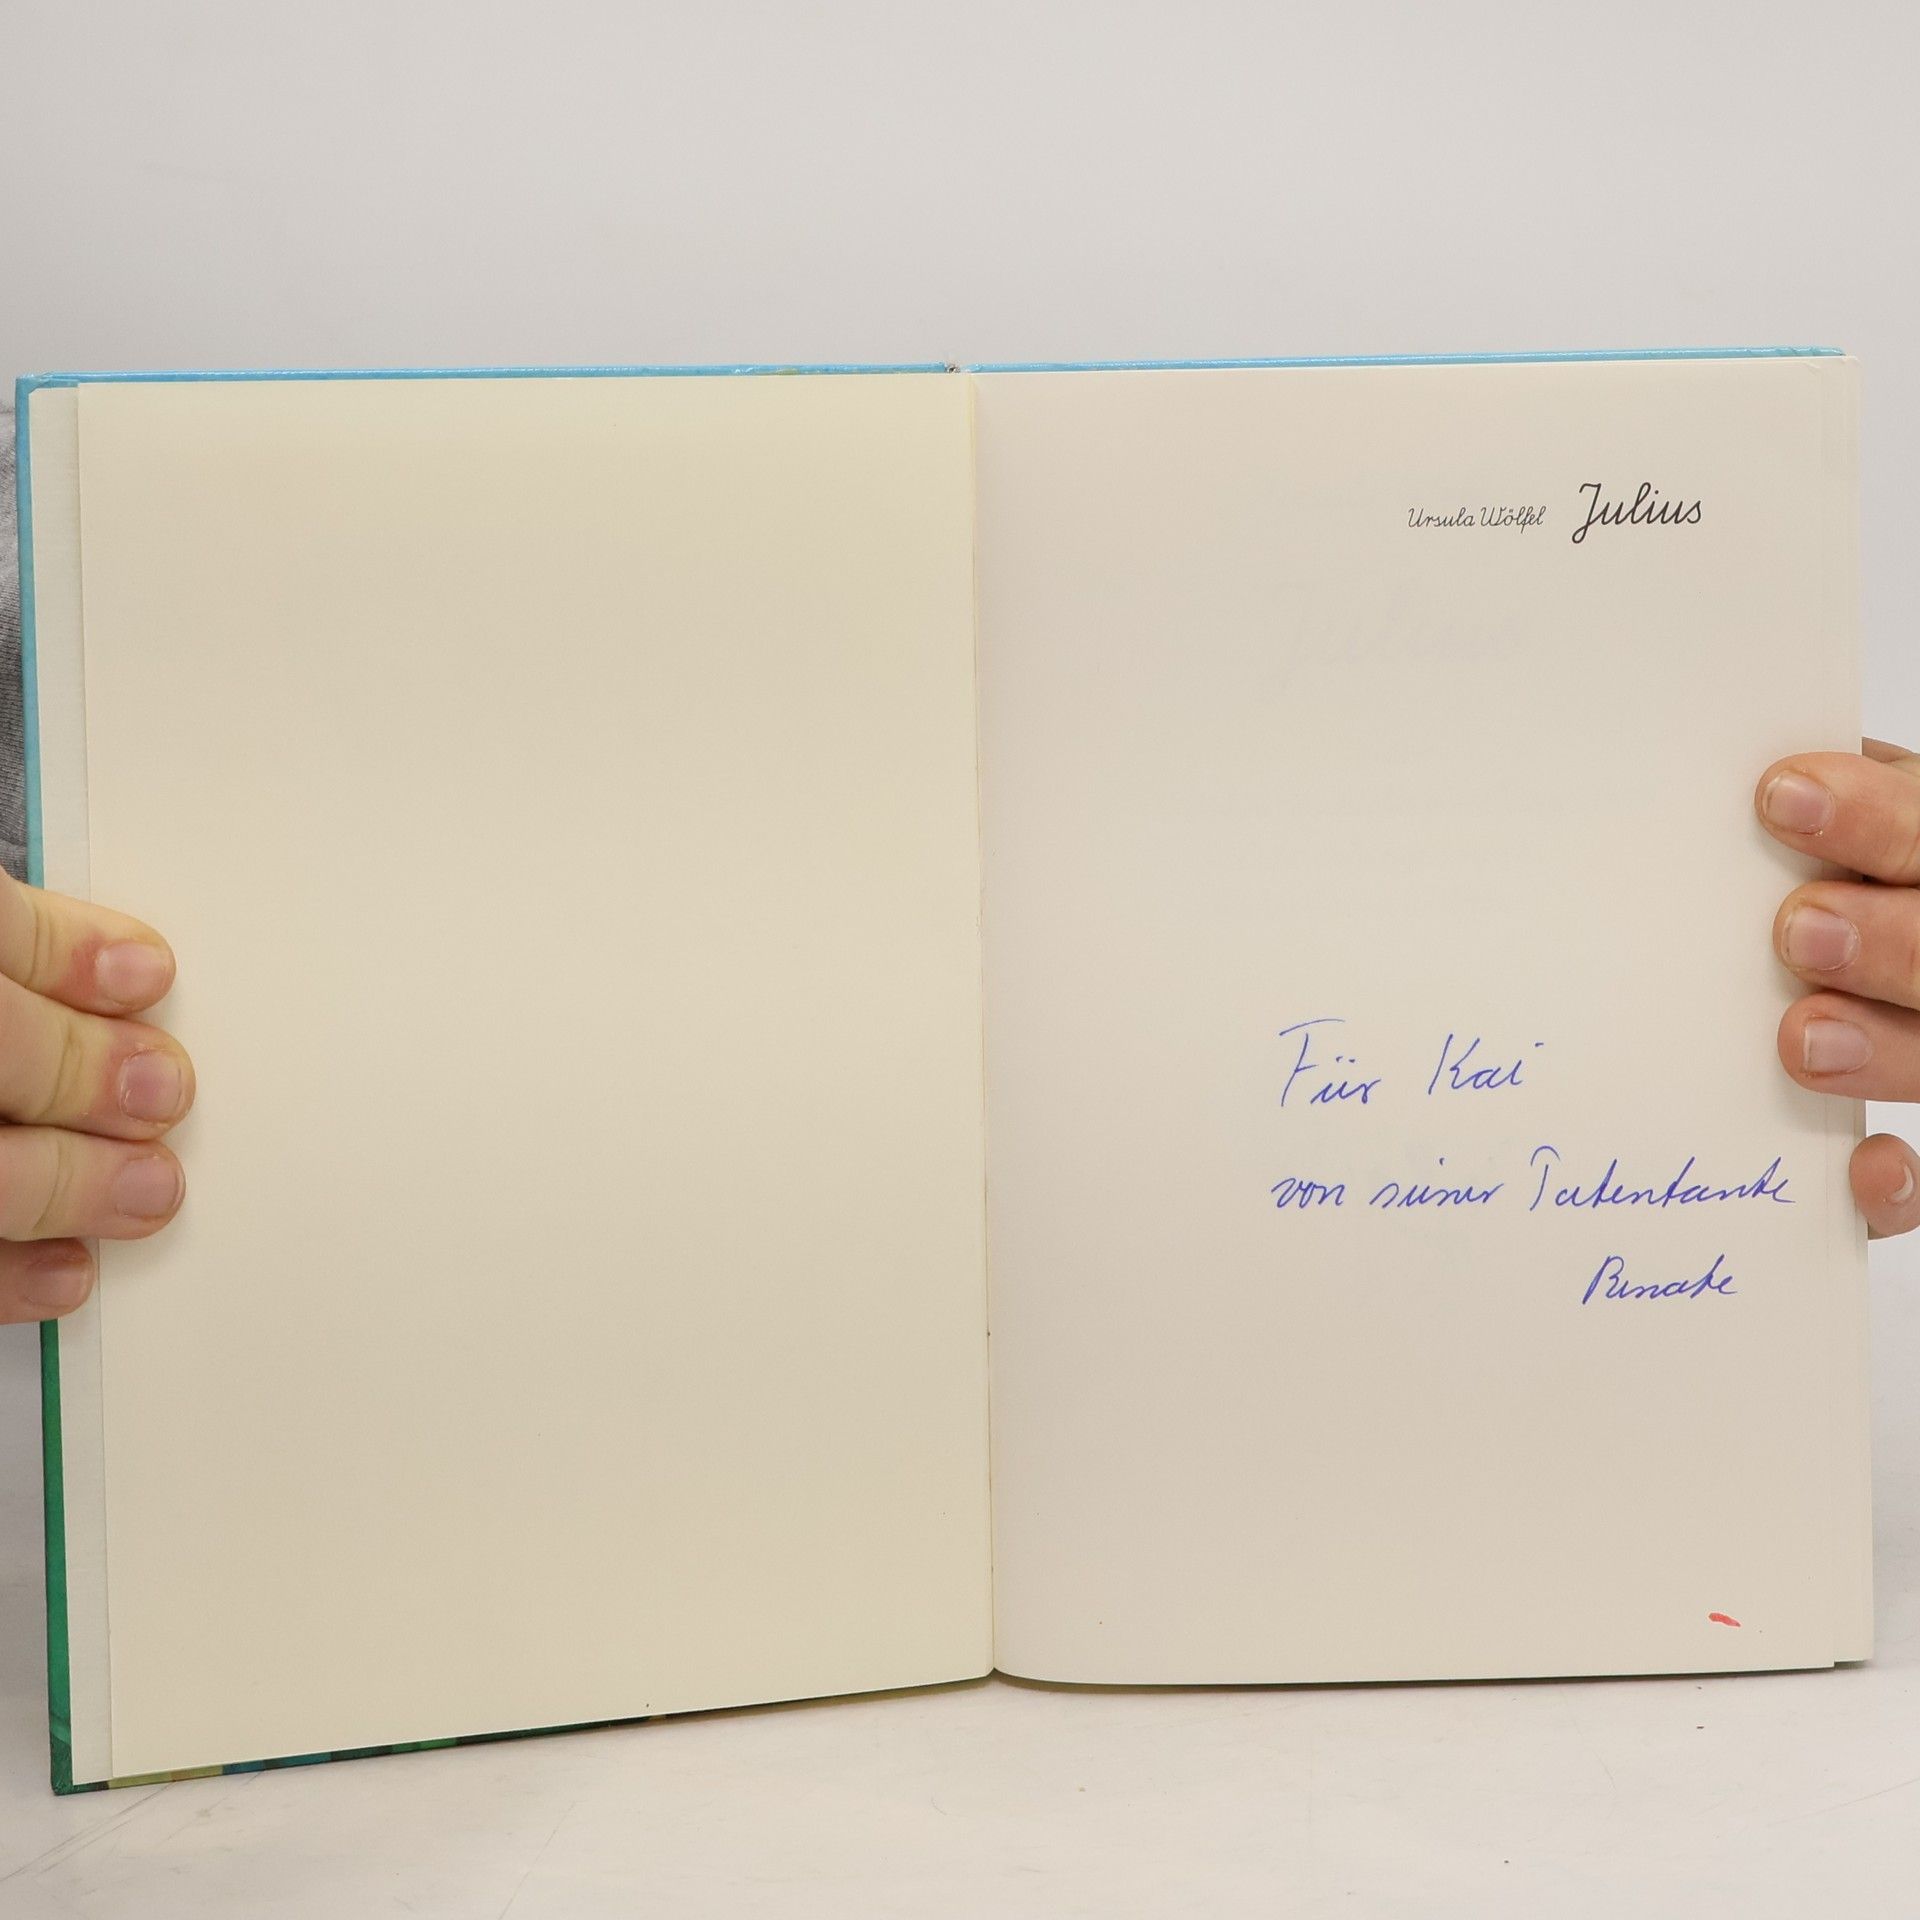 Ursula Wölfel Julius
Für Kai
von seiner Patentante
Renate